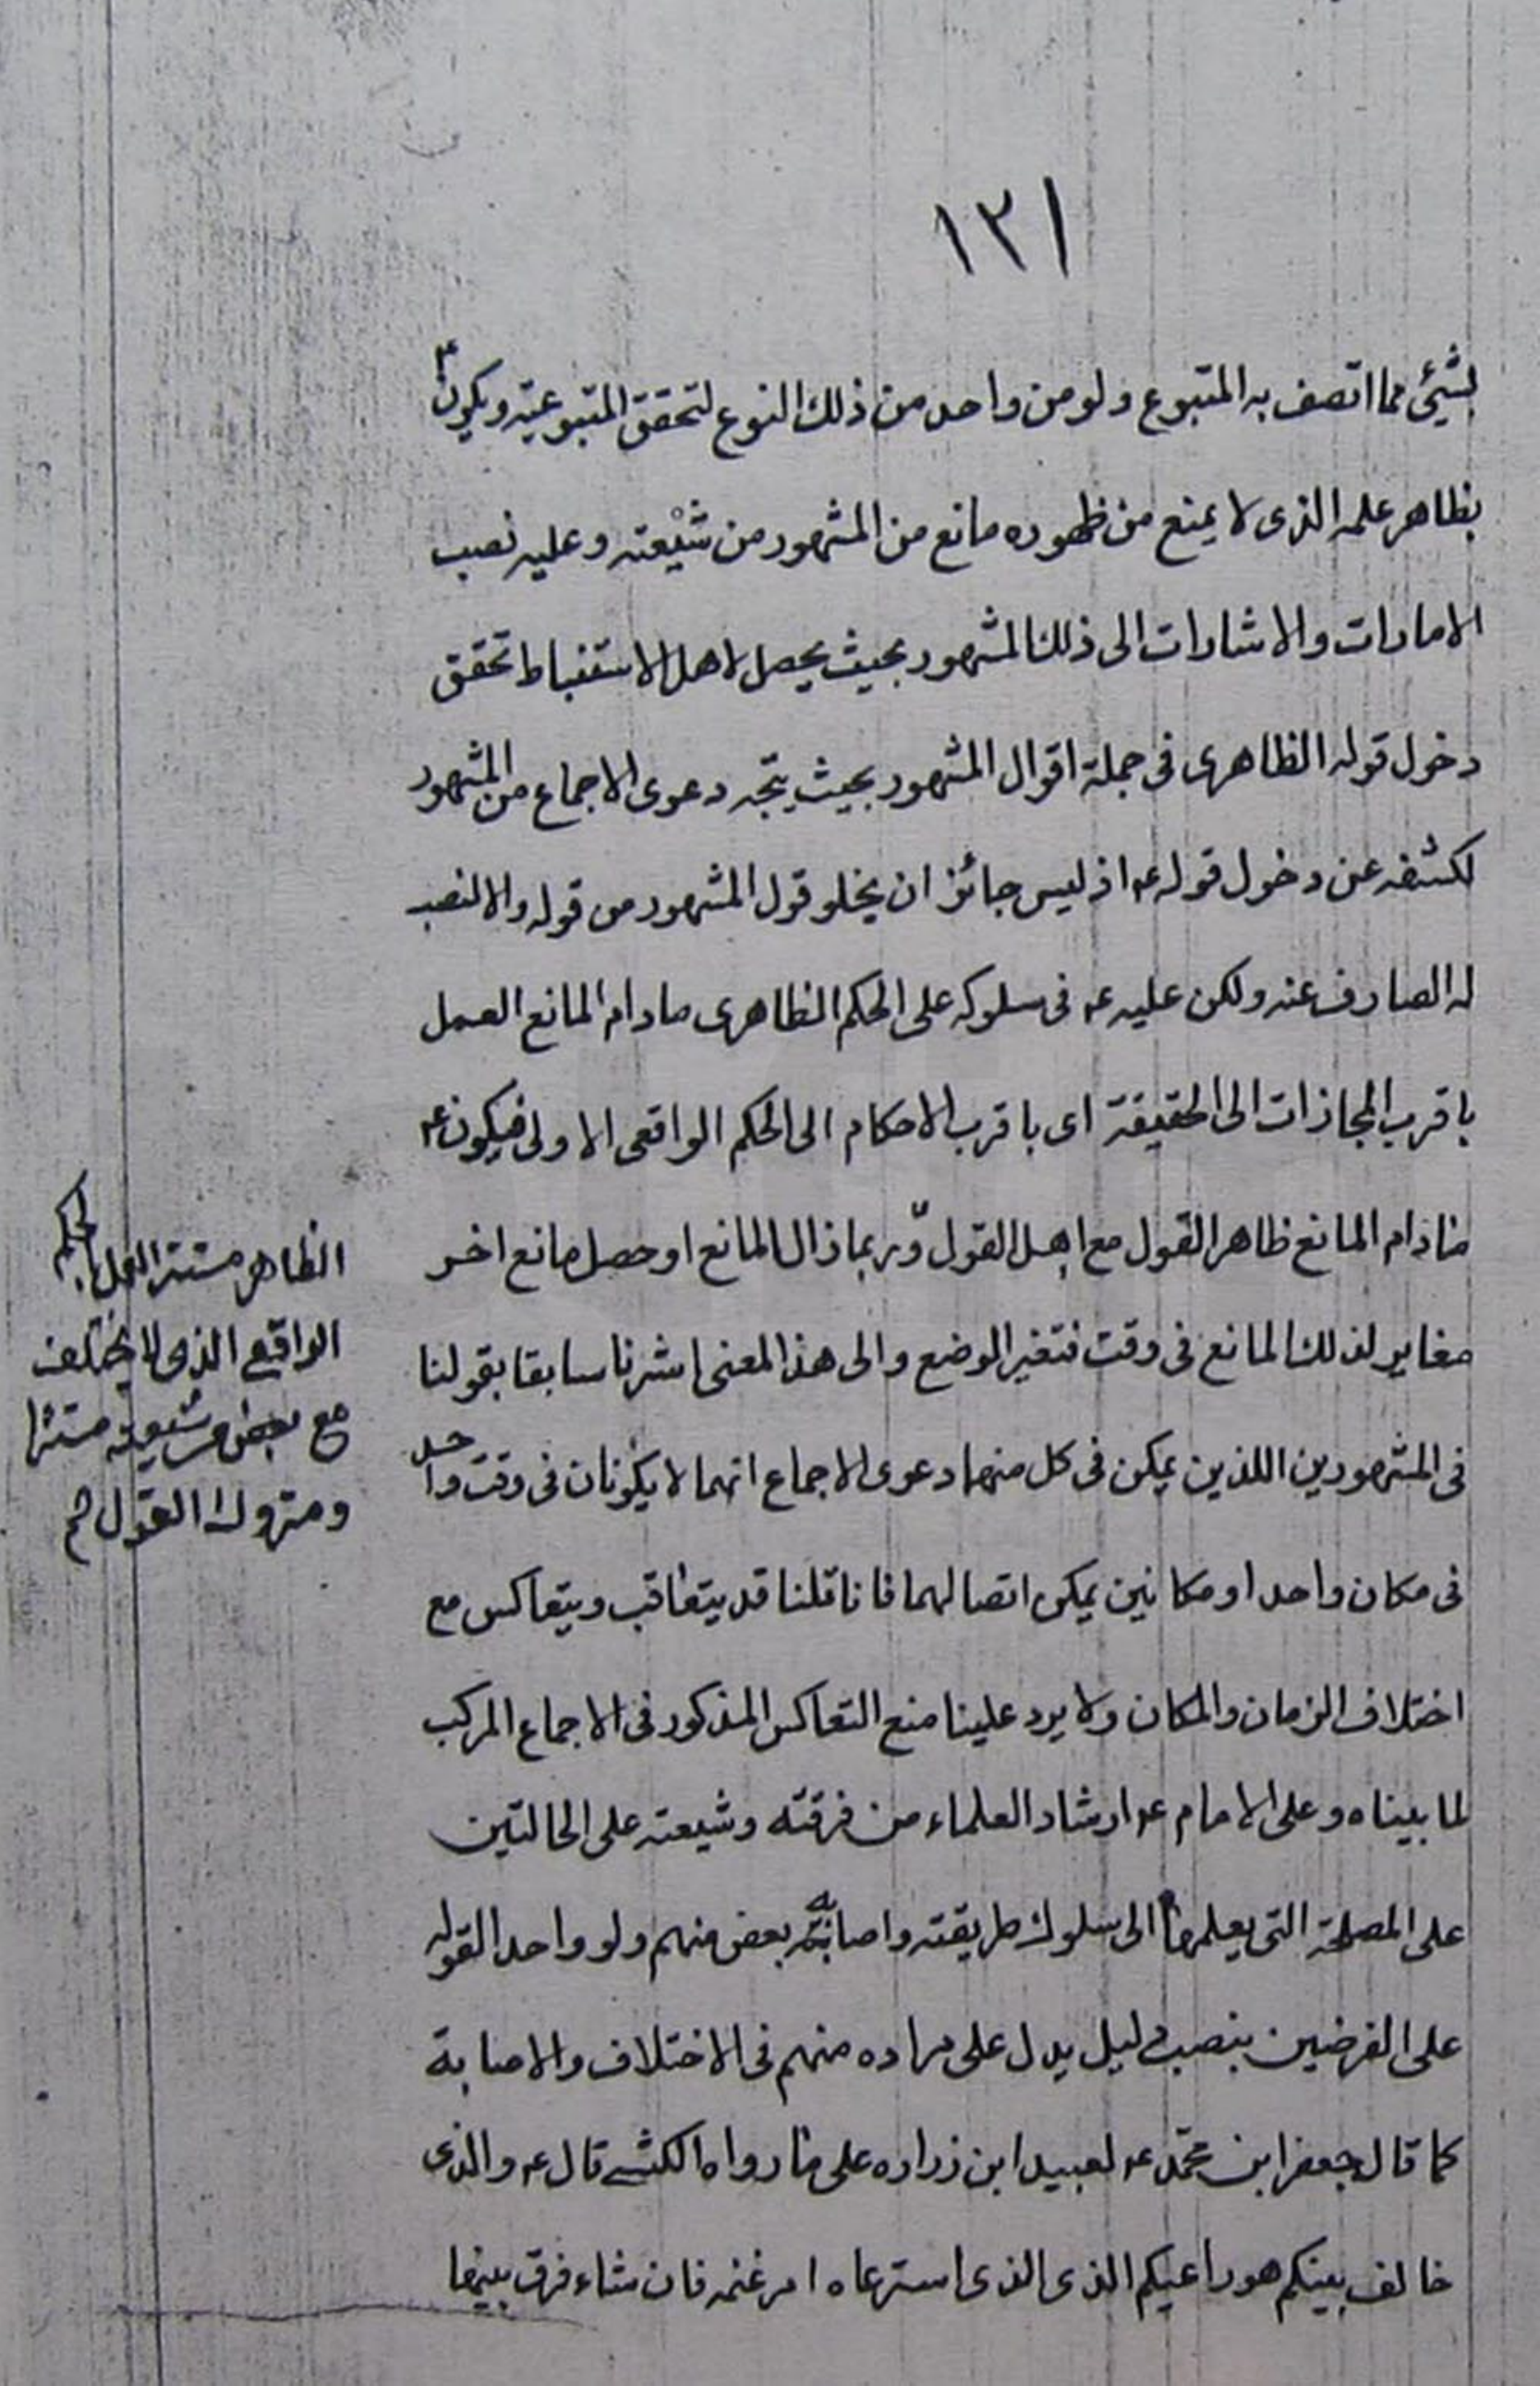 ١٣١
بشيئ مما اتصف به المتبوع ولو من واحد من ذلك النوع لتحقق المتبوعيته ويكون ع
بظاهر علمه الذى لا يمنع من ظهوره مانع من المشهور من شيعته وعليه نصب
الامارات والاشارات الى ذلك المشهور بحيث يحصل لاهل الاستنباط تحقق
دخول قوله الظاهرى فى جملة اقوال المشهور بحيث يتجه دعوى الاجماع من المشهور
لكشفه عن دخول قوله ع اذ ليس جائز ان يخلو قول المشهور من قوله والا لنصب
له الصارف عنه ولكن عليه ع فى سلوكه على الحكم الظاهرى مادام المانع العمل
باقرب المجازات الى الحقيقة اى باقرب الاحكام الى الحكم الواقعى الاولى فيكون ع
مادام المانع ظاهر القول مع اهل القول وربما زال المانع او حصل مانع اخر
مغاير لذلك المانع فى وقت فتغير الوضع والى هذا المعنى اشرنا سابقا بقولنا
فى المشهورين اللذين يمكن فى كل منهما دعوى الاجماع انهما لا يكونان فى وقت واحد
فى مكان واحد او مكانين يمكن اتصالهما فانا قلنا قد يتعاقب ويتعاكس مع
اختلاف الزمان والمكان ولا يرد علينا منع التعاكس المذكور فى الاجماع المركب
لما بيناه وعلى الامام ع ارشاد العلماء من فرقته وشيعته على الحالتين
على المصلحة التى يعلمها الى سلوك طريقته واصابة بعض منهم ولو واحد القوله
على الفرضين بنصب دليل يدل على مراده منهم فى الاختلاف والاصابة
كما قال جعفر ابن محمد ع لعبيد ابن زراره على ما رواه الكشے قال ع والذى
خالف بينكم هو راعيكم الذى الذى استرعاه امر غنمه فان شاء فرق بينها
الظاهر مستتر العمل بالحكم
الواقعے الذى لا يختلف
مع بعض من شيعته مستترا
ومتروك القول